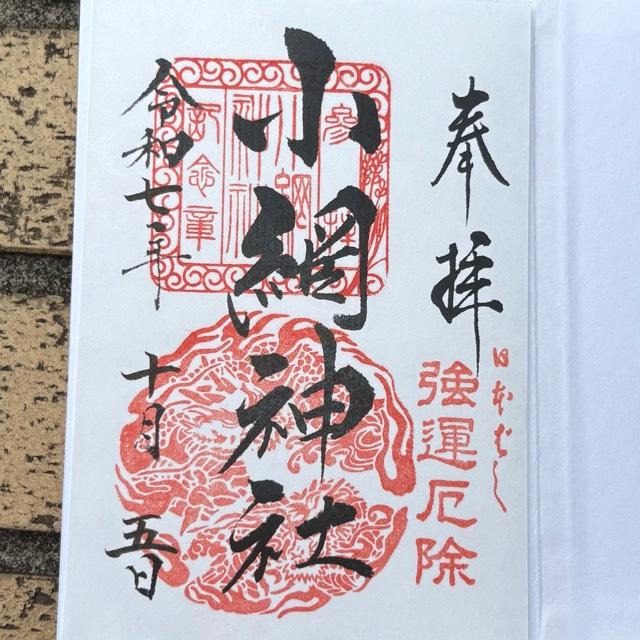 奉拝
日本ばし
強運厄除
小網神社
参拝
小網
神社
記念章
令和七年
十月
五日